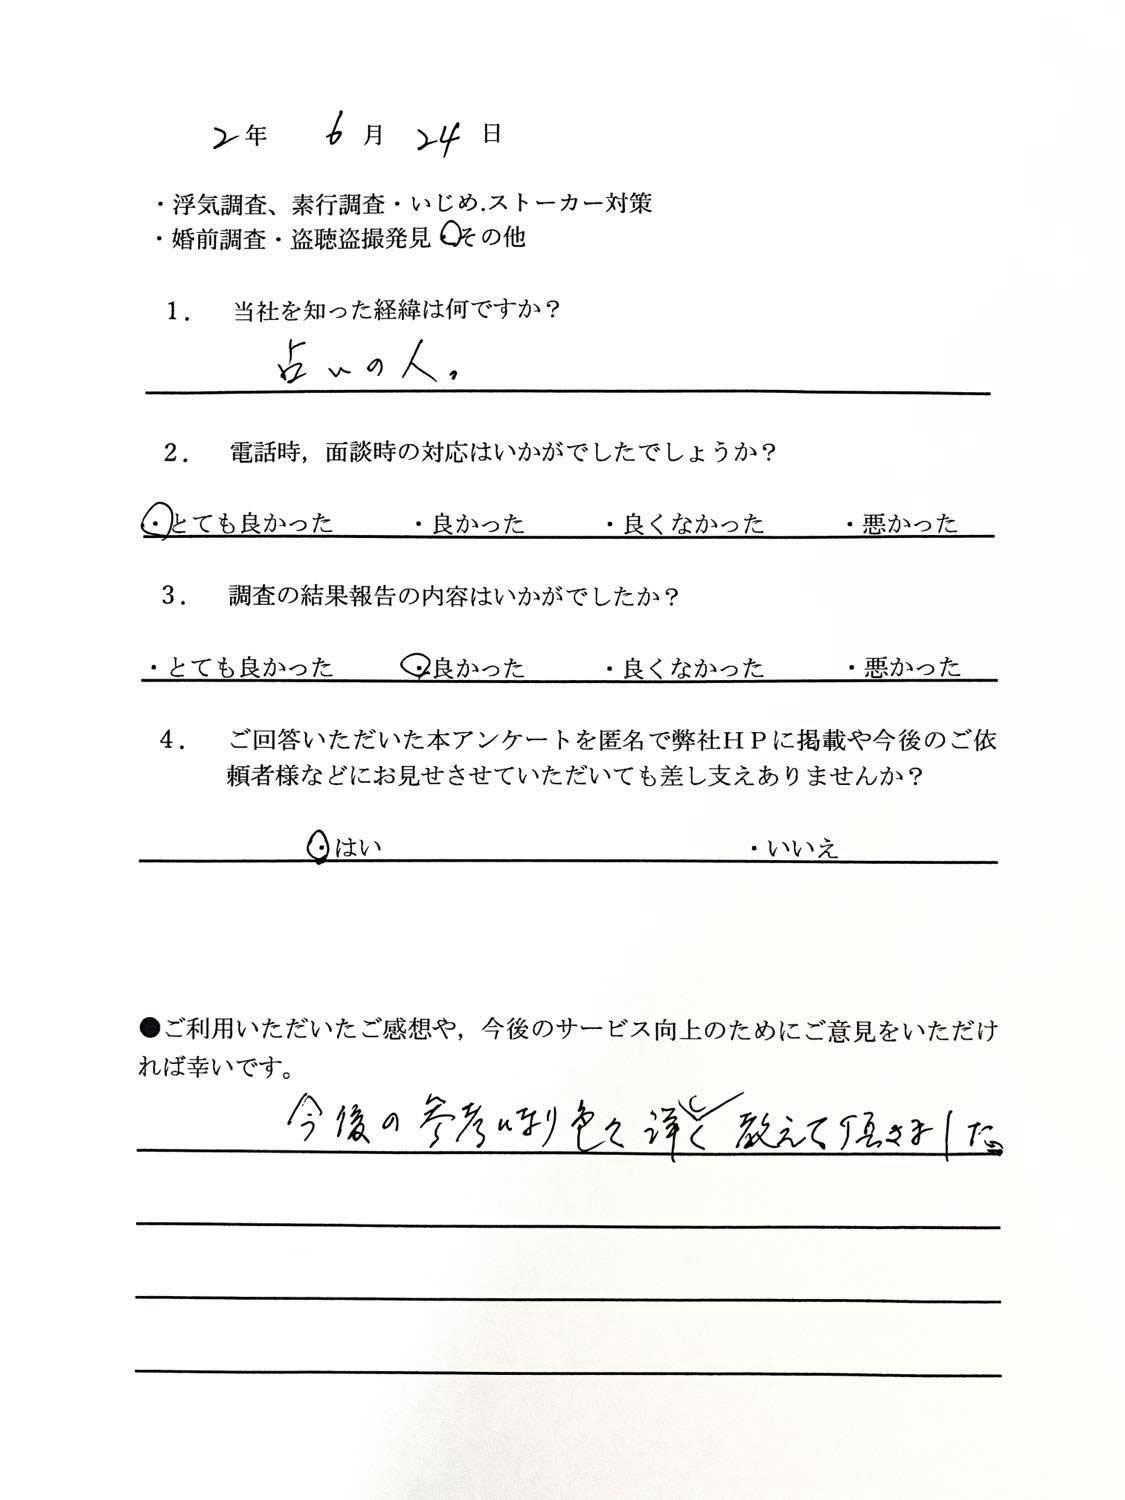 2年 6月 24日
・浮気調査、素行調査・いじめ.ストーカー対策
・婚前調査・盗聴盗撮発見・その他
1. 当社を知った経緯は何ですか？
占いの人。
2. 電話時，面談時の対応はいかがでしたでしょうか？
・とても良かった ・良かった ・良くなかった ・悪かった
3. 調査の結果報告の内容はいかがでしたか？
・とても良かった ・良かった ・良くなかった ・悪かった
4. ご回答いただいた本アンケートを匿名で弊社ＨＰに掲載や今後のご依
頼者様などにお見せさせていただいても差し支えありませんか？
・はい ・いいえ
●ご利用いただいたご感想や，今後のサービス向上のためにご意見をいただけ
れば幸いです。
今後の参考になり色々詳しく教えて頂きました。